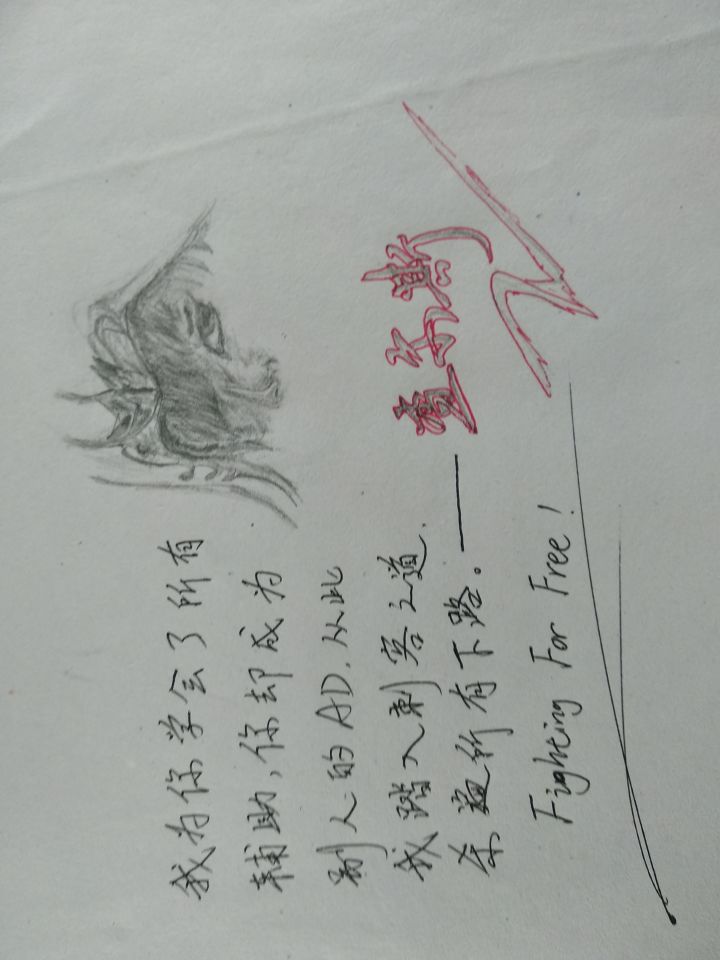 我为你学会了所有
辅助,你却成为
别人的AD.从此
我踏入刺客之道.
杀遍所有下路。——
Fighting For Free!